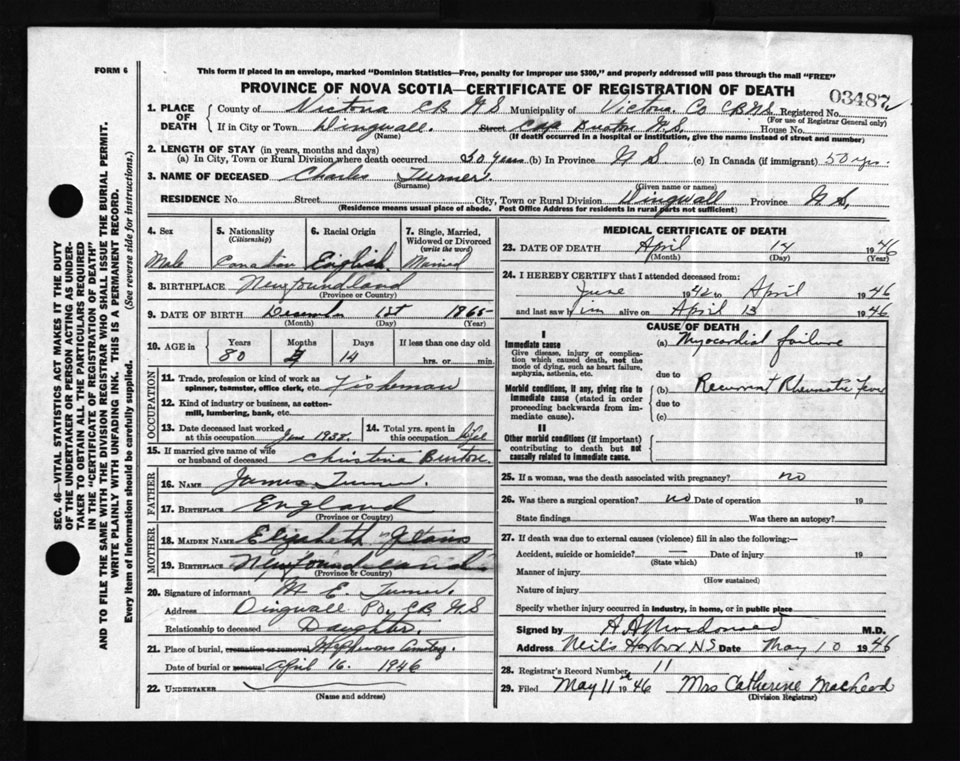 FORM 6
This form if placed in an envelope, marked "Dominion Statistics—Free, penalty for improper use $300," and properly addressed will pass through the mail "FREE"
PROVINCE OF NOVA SCOTIA—CERTIFICATE OF REGISTRATION OF DEATH
03487
1. PLACE OF DEATH
County of Victoria CB NS Municipality of Victoria Co CB NS Registered No.
(For use of Registrar General only)
If in City or Town Dingwall. Street Cape Breton N.S. House No.
(Name) (If death occurred in a hospital or institution, give the name instead of street and number)
2. LENGTH OF STAY (in years, months and days)
(a) In City, Town or Rural Division where death occurred 50 years (b) In Province N S (c) In Canada (if immigrant) 50 yrs.
3. NAME OF DECEASED Charles Turner.
(Surname) (Given name or names)
RESIDENCE No. Street City, Town or Rural Division Dingwall Province N S,
(Residence means usual place of abode. Post Office Address for residents in rural parts not sufficient)
4. Sex
Male
5. Nationality
(Citizenship)
Canadian
6. Racial Origin
English
7. Single, Married, Widowed or Divorced
(write the word)
Married
8. BIRTHPLACE Newfoundland
(Province or Country)
9. DATE OF BIRTH December 1st 1865
(Month) (Day) (Year)
10. AGE in
Years Months Days If less than one day old
80 14 hrs. or min.
OCCUPATION
11. Trade, profession or kind of work as spinner, teamster, office clerk, etc. Fisherman
12. Kind of industry or business, as cotton-mill, lumbering, bank, etc.
13. Date deceased last worked at this occupation June 1938.
14. Total yrs. spent in this occupation Life
15. If married give name of wife or husband of deceased Christina Burton.
FATHER
16. NAME James Turner.
17. BIRTHPLACE England
(Province or Country)
MOTHER
18. MAIDEN NAME Elizabeth
19. BIRTHPLACE Newfoundland
(Province or Country)
20. Signature of informant M E. Turner.
Address Dingwall P.O., C.B. N S
Relationship to deceased Daughter.
21. Place of burial, cremation or removal
Date of burial or removal April 16. 1946
22. UNDERTAKER
(Name and address)
MEDICAL CERTIFICATE OF DEATH
23. DATE OF DEATH April 14 1946
(Month) (Day) (Year)
24. I HEREBY CERTIFY that I attended deceased from:
June 1942 to April 1946
and last saw him alive on April 13 1946
CAUSE OF DEATH
I
Immediate cause
Give disease, injury or complication which caused death, not the mode of dying, such as heart failure, asphyxia, asthenia, etc.
(a) Myocardial failure
due to
Morbid conditions, if any, giving rise to immediate cause (stated in order proceeding backwards from immediate cause).
(b) Recurrent Rheumatic Fever
due to
(c)
II
Other morbid conditions (if important) contributing to death but not causally related to immediate cause.
25. If a woman, was the death associated with pregnancy? no
26. Was there a surgical operation? no Date of operation 19
State findings Was there an autopsy?
27. If death was due to external causes (violence) fill in also the following:—
Accident, suicide or homicide? — Date of injury 19
(State which)
Manner of injury
(How sustained)
Nature of injury
Specify whether injury occurred in industry, in home, or in public place
Signed by M.D.
Address Neil's Harbor N.S. Date May 10 1946
28. Registrar's Record Number 11
29. Filed May 11th 1946 Mrs Catherine MacLeod
(Division Registrar)
SEC. 46—VITAL STATISTICS ACT MAKES IT THE DUTY
OF THE UNDERTAKER OR PERSON ACTING AS UNDER-
TAKER TO OBTAIN ALL THE PARTICULARS REQUIRED
IN THE "CERTIFICATE OF REGISTRATION OF DEATH"
AND TO FILE THE SAME WITH THE DIVISION REGISTRAR WHO SHALL ISSUE THE BURIAL PERMIT.
WRITE PLAINLY WITH UNFADING INK. THIS IS A PERMANENT RECORD.
Every item of information should be carefully supplied. (See reverse side for instructions.)